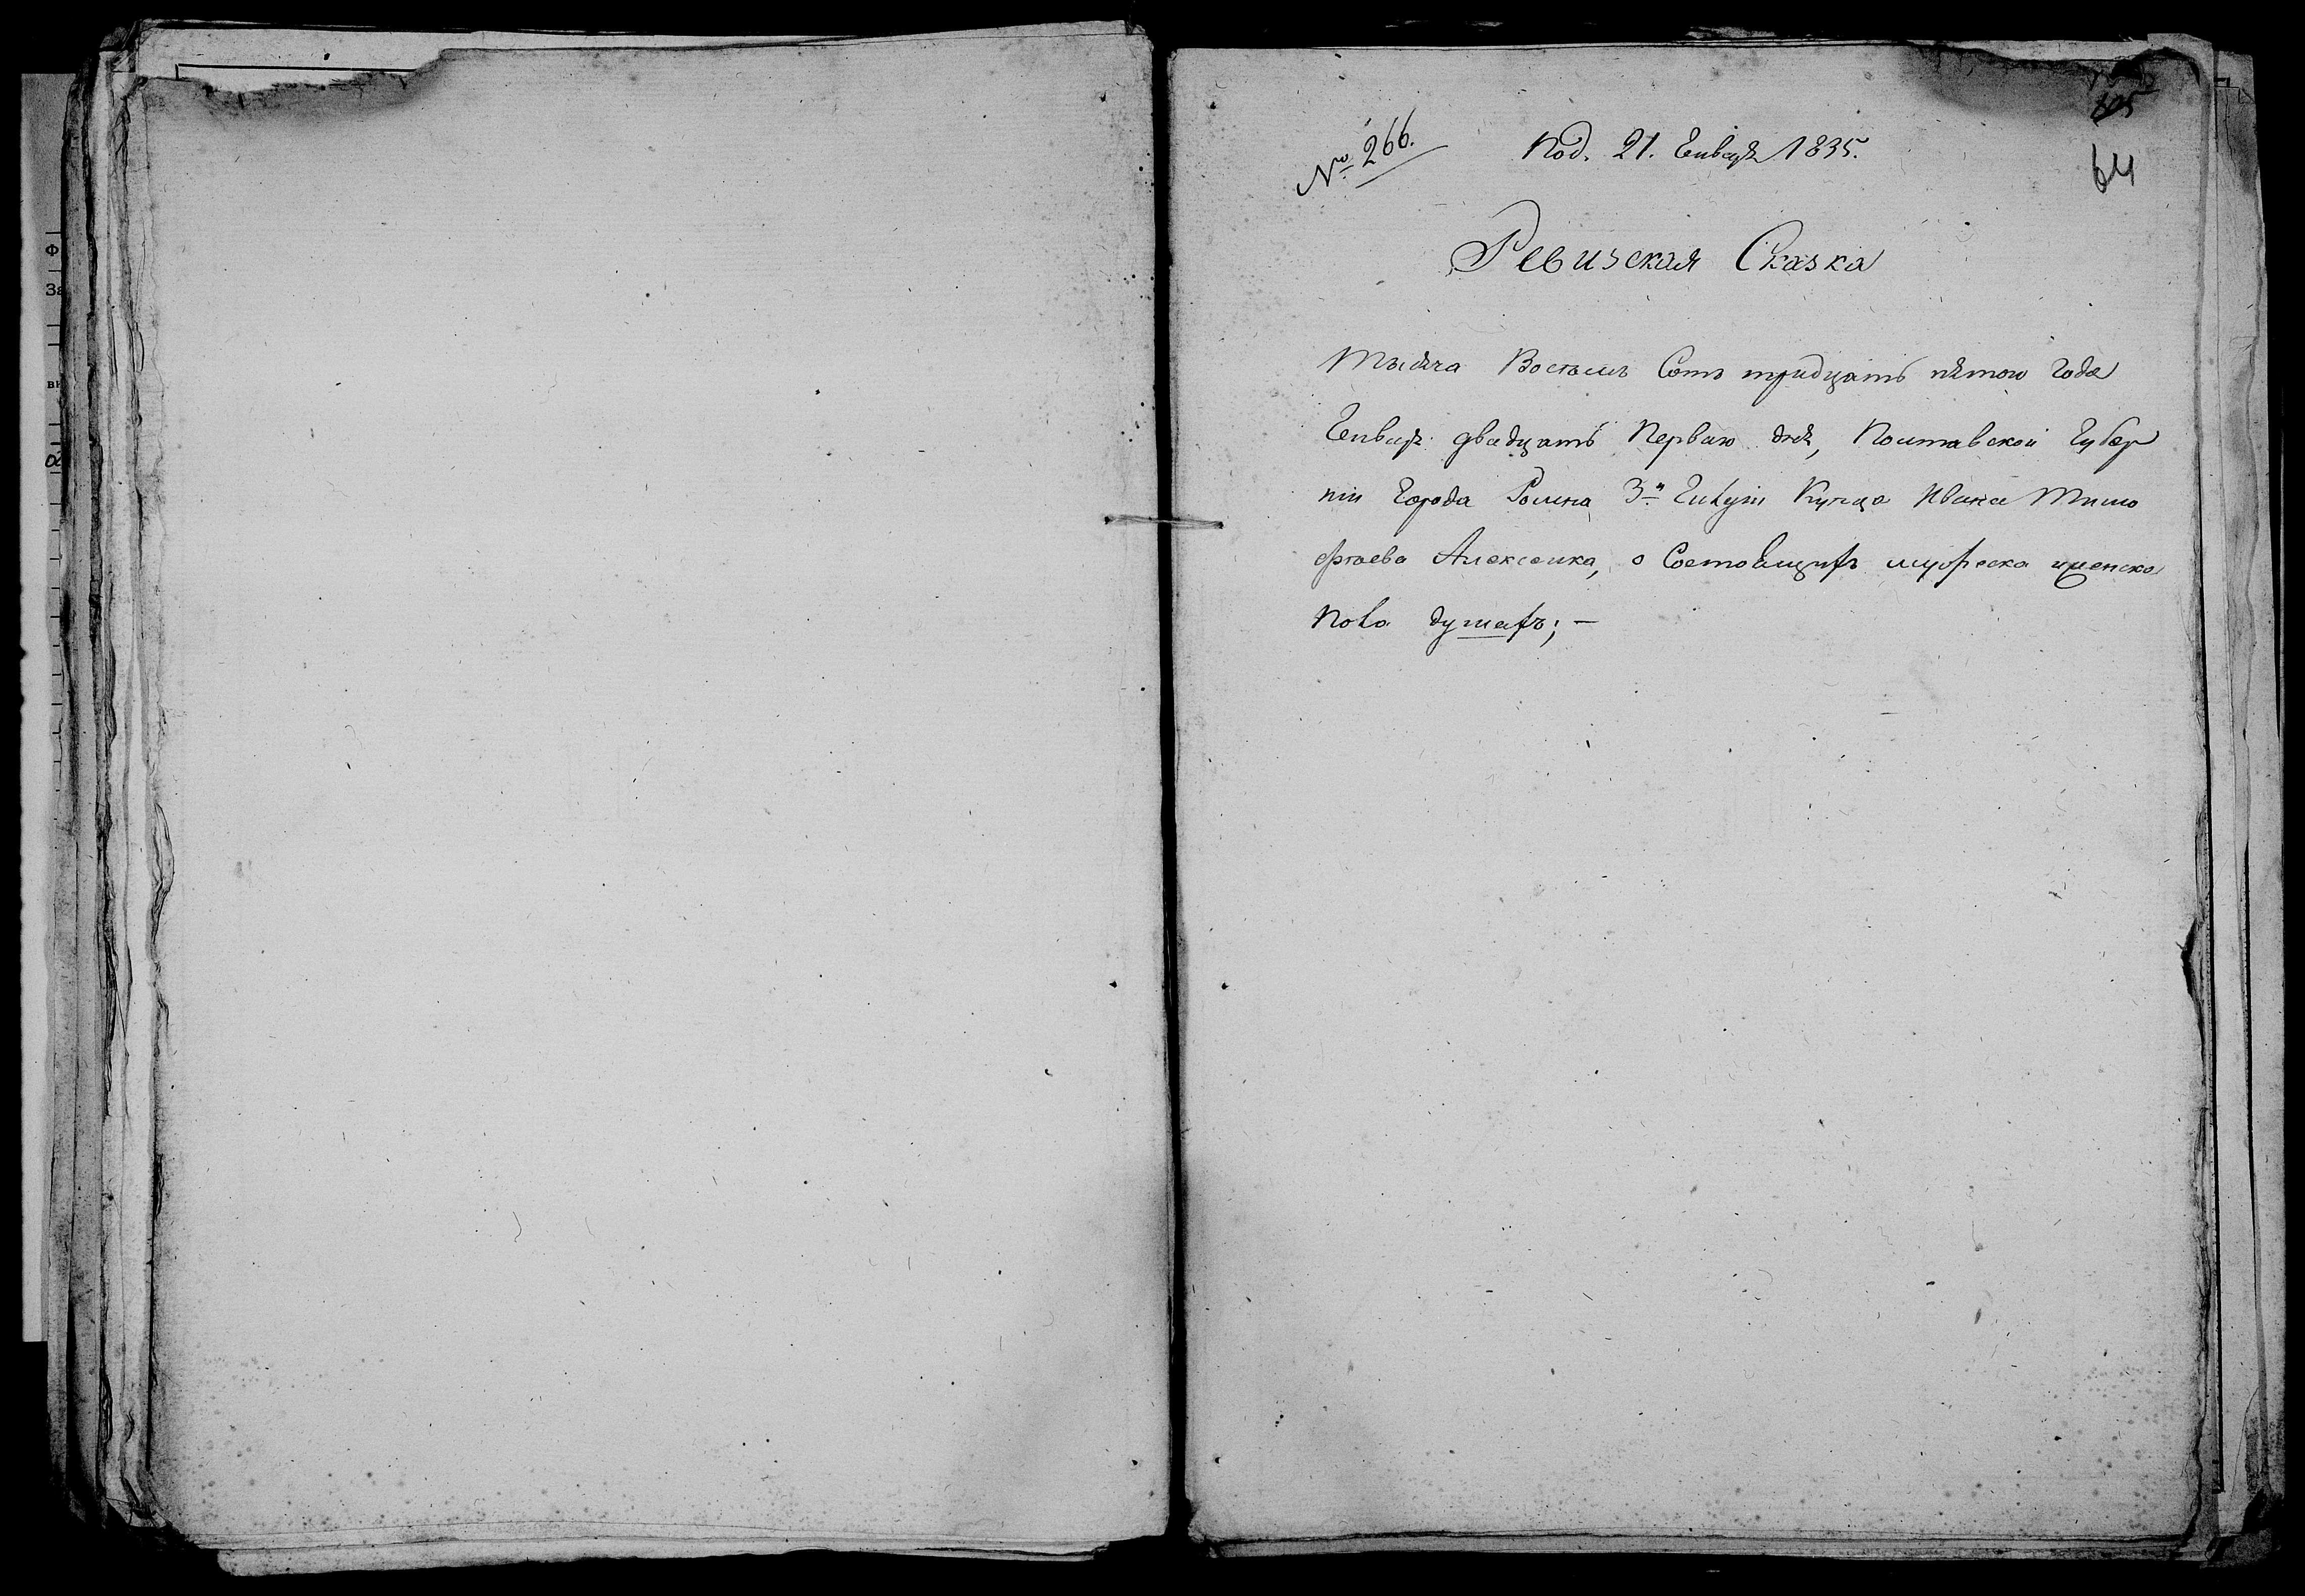 № 266.
Под. 21. Генваря 1835.
105
64
Ревизская Сказка
Тысяча Восемь Сотъ тридцать пятого Года
Генваря двадцать Перваго дня, Полтавской Губер
ніи Города Ромна 3й Гильдіи Купца Ивана Тимо
фѣева Алексенка, о Состоящихъ мужеска и женска
Пола душахъ; —